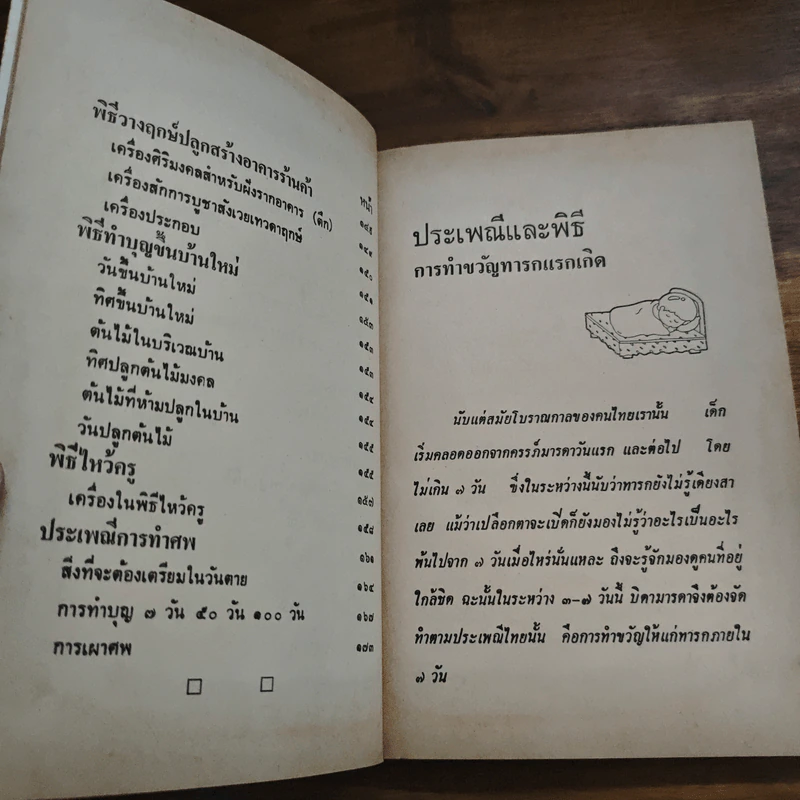 หน้า
พิธีวางฤกษ์ปลูกสร้างอาคารร้านค้า ๑๔๕
เครื่องศิริมงคลสำหรับฝังรากอาคาร (ตึก) ๑๔๙
เครื่องสักการบูชาสังเวยเทวดาฤกษ์ ๑๕๐
เครื่องประกอบ ๑๕๑
พิธีทำบุญขึ้นบ้านใหม่ ๑๕๓
วันขึ้นบ้านใหม่ ๑๕๓
ทิศขึ้นบ้านใหม่ ๑๕๓
ต้นไม้ในบริเวณบ้าน ๑๕๔
ทิศปลูกต้นไม้มงคล ๑๕๔
ต้นไม้ที่ห้ามปลูกในบ้าน ๑๕๕
วันปลูกต้นไม้ ๑๕๕
พิธีไหว้ครู ๑๕๗
เครื่องในพิธีไหว้ครู ๑๕๘
ประเพณีการทำศพ ๑๖๑
สิ่งที่จะต้องเตรียมในวันตาย ๑๖๔
การทำบุญ ๗ วัน ๕๐ วัน ๑๐๐ วัน ๑๖๗
การเผาศพ ๑๗๓
ประเพณีและพิธี
การทำขวัญทารกแรกเกิด
นับแต่สมัยโบราณกาลของคนไทยเรานั้น เด็ก
เริ่มคลอดออกจากครรภ์มารดาวันแรก และต่อไป โดย
ไม่เกิน ๗ วัน ซึ่งในระหว่างนี้นับว่าทารกยังไม่รู้เดียงสา
เลย แม้ว่าเปลือกตาจะเปิดก็ยังมองไม่รู้ว่าอะไรเป็นอะไร
พ้นไปจาก ๗ วันเมื่อไหร่นั่นแหละ ถึงจะรู้จักมองดูคนที่อยู่
ใกล้ชิด ฉะนั้นในระหว่าง ๓–๗ วันนี้ บิดามารดาจึงต้องจัด
ทำตามประเพณีไทยนั้น คือการทำขวัญให้แก่ทารกภายใน
๗ วัน